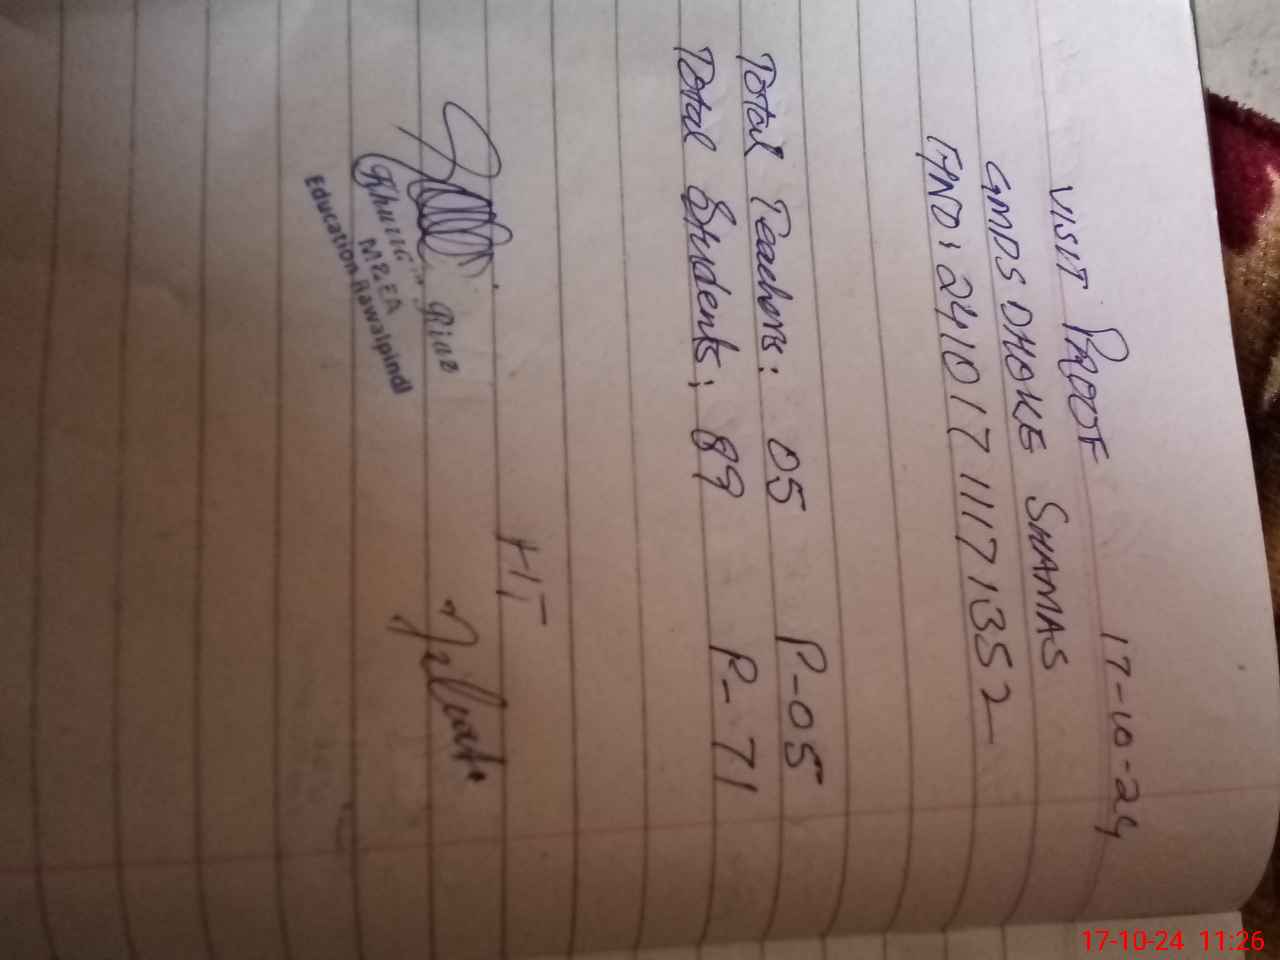 17-10-24
VISIT PROOF
GMDS DHOKE SHAMAS
FAND: 24101711171352
Total Teachers: 05 P-05
Total Students: 89 P-71
HT
Riaz
MEEA
Education Rawalpindi
17-10-24 11:26